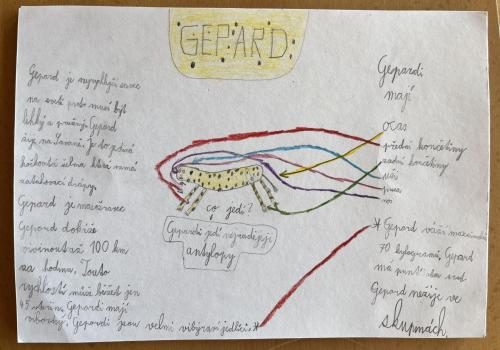 GEPARD
Gepard je nejrychlejší savec
na světě proto musí být
lehký a pružný. Gepard
žije na Savaně. Je to jediná
kočkovitá šelma která nemá
zatahovací drápy.
Gepard je masožravec
Gepard dokáže
vyvinout až 100 km
za hodinu. Touto
rychlostí může běžet jen
Gepardi mají
Gepardi jsou velmi vibýraví jedlíci.*
co jedí?
Gepardi jedí nejraději
antylopy
Gepardi
mají
ocas
přední končetiny
zadní končetiny
uši
* Gepard váží maximálně
70 kylogramů, Gepard
má puntí
Gepard nežije ve
skupinách.